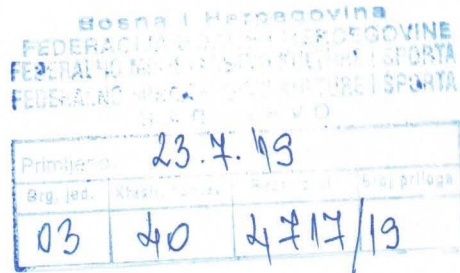 Bosna i Hercegovina
FEDERACIJA BOSNE I HERCEGOVINE
FEDERALNO MINISTARSTVO KULTURE I SPORTA
FEDERALNO MINISTARSTVO KULTURE I SPORTA
Primljeno: 23.7.19
Org. jed. Broj priloga
03 40 4717/19